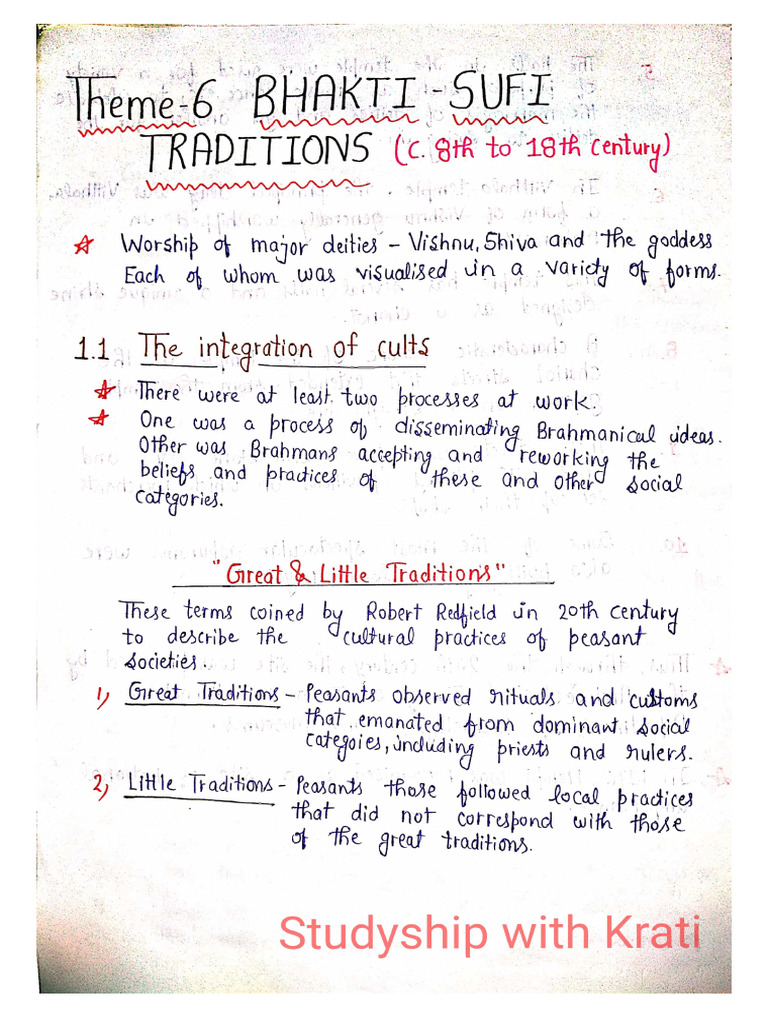 Theme-6 BHAKTI-SUFI
TRADITIONS (c. 8th to 18th century)
Worship of major deities – Vishnu, Shiva and the goddess
Each of whom was visualised in a variety of forms.
1.1 The integration of cults
There were at least two processes at work.
One was a process of disseminating Brahmanical ideas.
Other was Brahmans accepting and reworking the
beliefs and practices of these and other social
categories.
"Great & Little Traditions"
These terms coined by Robert Redfield in 20th century
to describe the cultural practices of peasant
societies.
1) Great Traditions – Peasants observed rituals and customs
that emanated from dominant social
categoies, including priests and rulers.
2) Little Traditions – Peasants those followed local practices
that did not correspond with those
of the great traditions.
Studyship with Krati